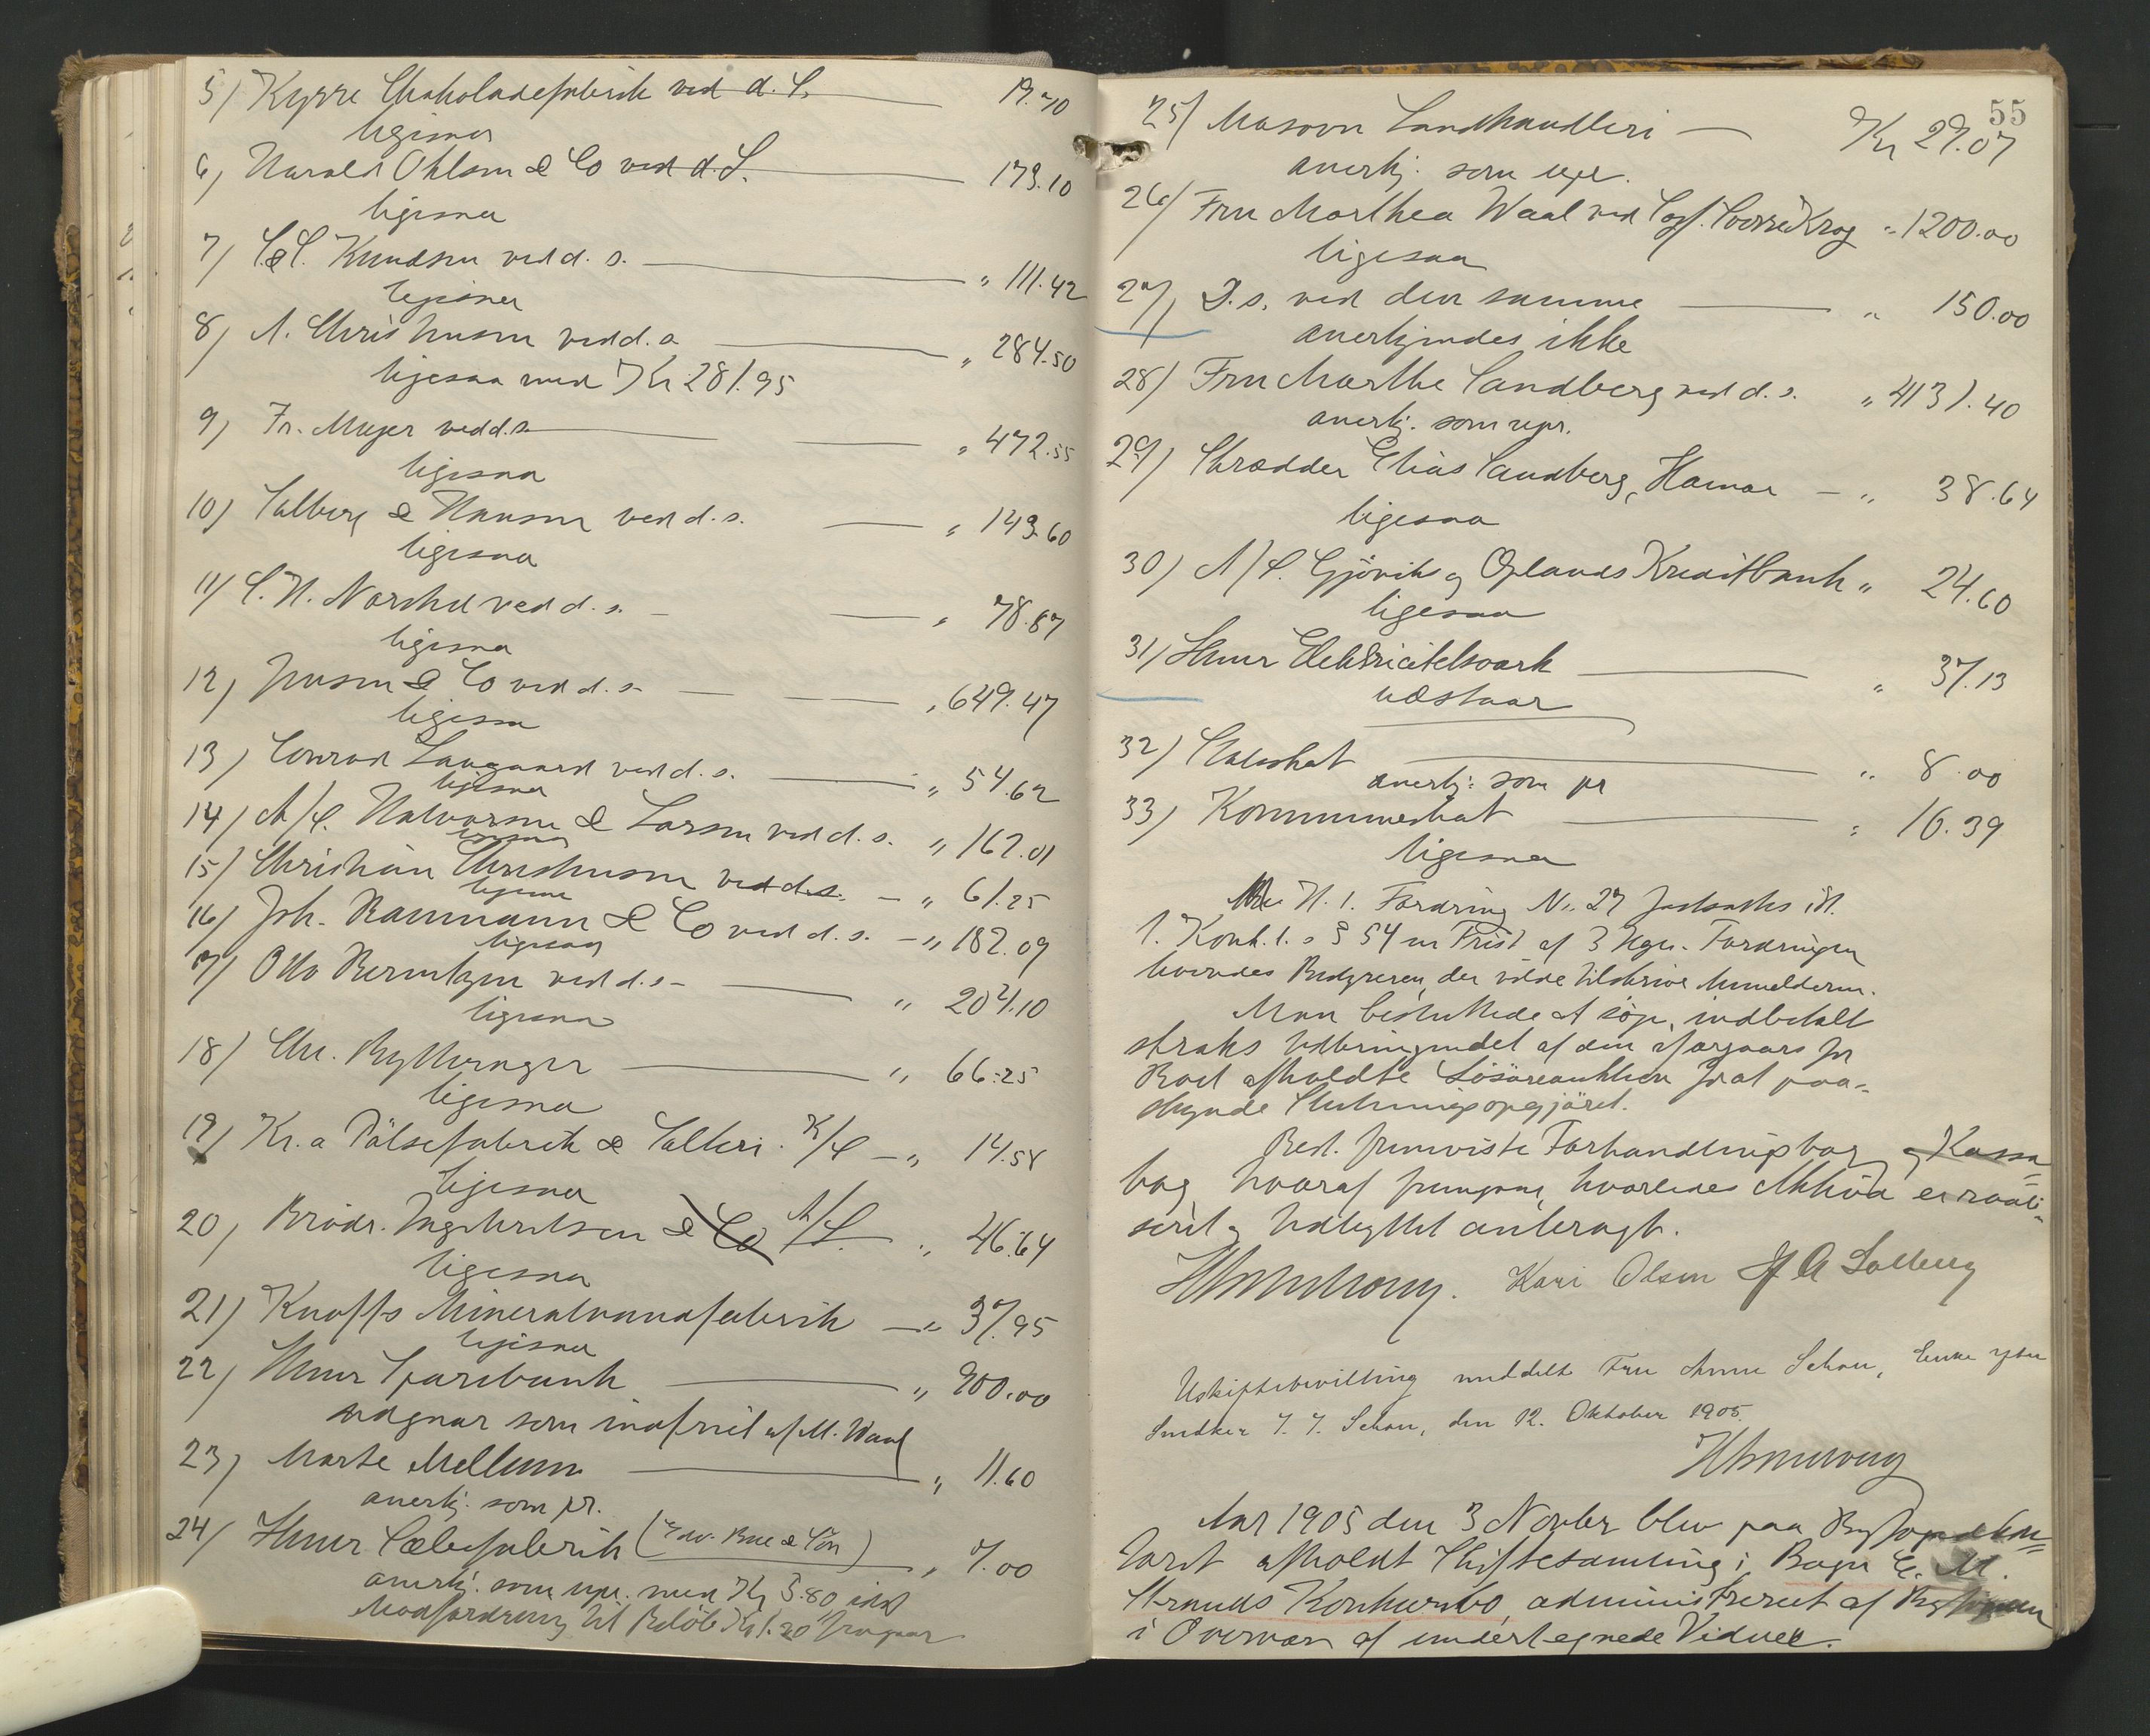 5) Kyrre Chokoladefabrik ved d. S. 19.70
ligesaa
6) Harald Ohlson & Co ved d. S. 179.10
ligesaa
7) C. & C. Knudsen ved d. s. " 111.42
ligesaa
8) A. Christensen ved d. s. " 284.50
ligesaa med Kr 281.95
9) Fr. Meyer ved d. s. " 472.55
ligesaa
10) Salberg & Hansen ved d. s. " 149.60
ligesaa
11) ved d. s. " 78.87
ligesaa
12) Jensen & Co ved d. s. " 649.47
ligesaa
13) Conrad Langaard ved d. s. " 54.62
ligesaa
14) A/S. Halvorsen & Larsen ved d. s. " 162.01
ligesaa
15) Christian Christensen ved d. s. " 61.25
ligesaa
16) Joh. Rammann & Co ved d. s. " 182.09
ligesaa
17) Otto Berentzen ved d. s. " 204.10
ligesaa
18) Chr. " 66.25
ligesaa
19) Kr.a Pölsefabrik & Salteri. " 14.58
ligesaa
20) Brödr. Ingebretsen & Co A/S. " 46.64
ligesaa
21) Knoffs Mineralvandfabrik " 37.95
ligesaa
22) Sparebank " 900.00
som indfriet af M. Waal
23) Marte Mellum " 11.60
anerkj. som pr.
24) Sæbefabrik (Edv. Bue & Sön) " 7.00
anerkj. som upr. med Kr 5.80 idet
Modfordring til Beløb Kr 1.20 fragaar
55
25) Masovn Landhandleri Kr 29.07
anerkj. som upr.
26) Fru Marthea Waal ved Sagf. Sverre Krog " 1200.00
ligesaa
27) D. s. ved den samme " 150.00
anerkjendes ikke
28) Fru Marthe Sandberg ved d. s. " 4131.40
anerkj. som upr.
29) Skrædder Elias Sandberg, Hamar " 38.64
ligesaa
30) A/S. Gjövik og Oplands Kreditbank " 24.60
ligesaa
31) Elektricitetsværk " 37.13
udstaar
32) Statsskat " 8.00
anerkj: som pr
33) Kommuneskat " 16.39
ligesaa
H. t. Fordring No. 27 fastsattes ifl.
K. Konk. l.s § 54 en Frist af 3 Uger. Fordringen
hævdes Bestyreren, der vilde tilskrive Anmelderen.
Man besluttede at søge indbetalt
straks Udbringendet af den iforgaars for
Boet afholdte Løsöreauktion for at paa-
skynde Slutningsopgjöret.
Best. fremviste Forhandlingsbog og Kassa
bog, hvoraf fremgaar, hvorledes Aktiva er reali-
seret og Udbyttet anbragt.
Kari Olsen H A Solberg
Uskiftebevilling meddelt Fru Anne Schou, Enke efter
Snedker J. J. Schou, den 12. Oktober 1905.
Aar 1905 den 3 Novbr blev paa Byfogedkon-
toret afholdt Skiftesamling i Bager C. M.
Strands Konkursbo, administreret af Byfogden
i Overvær af undertegnede Vidner.